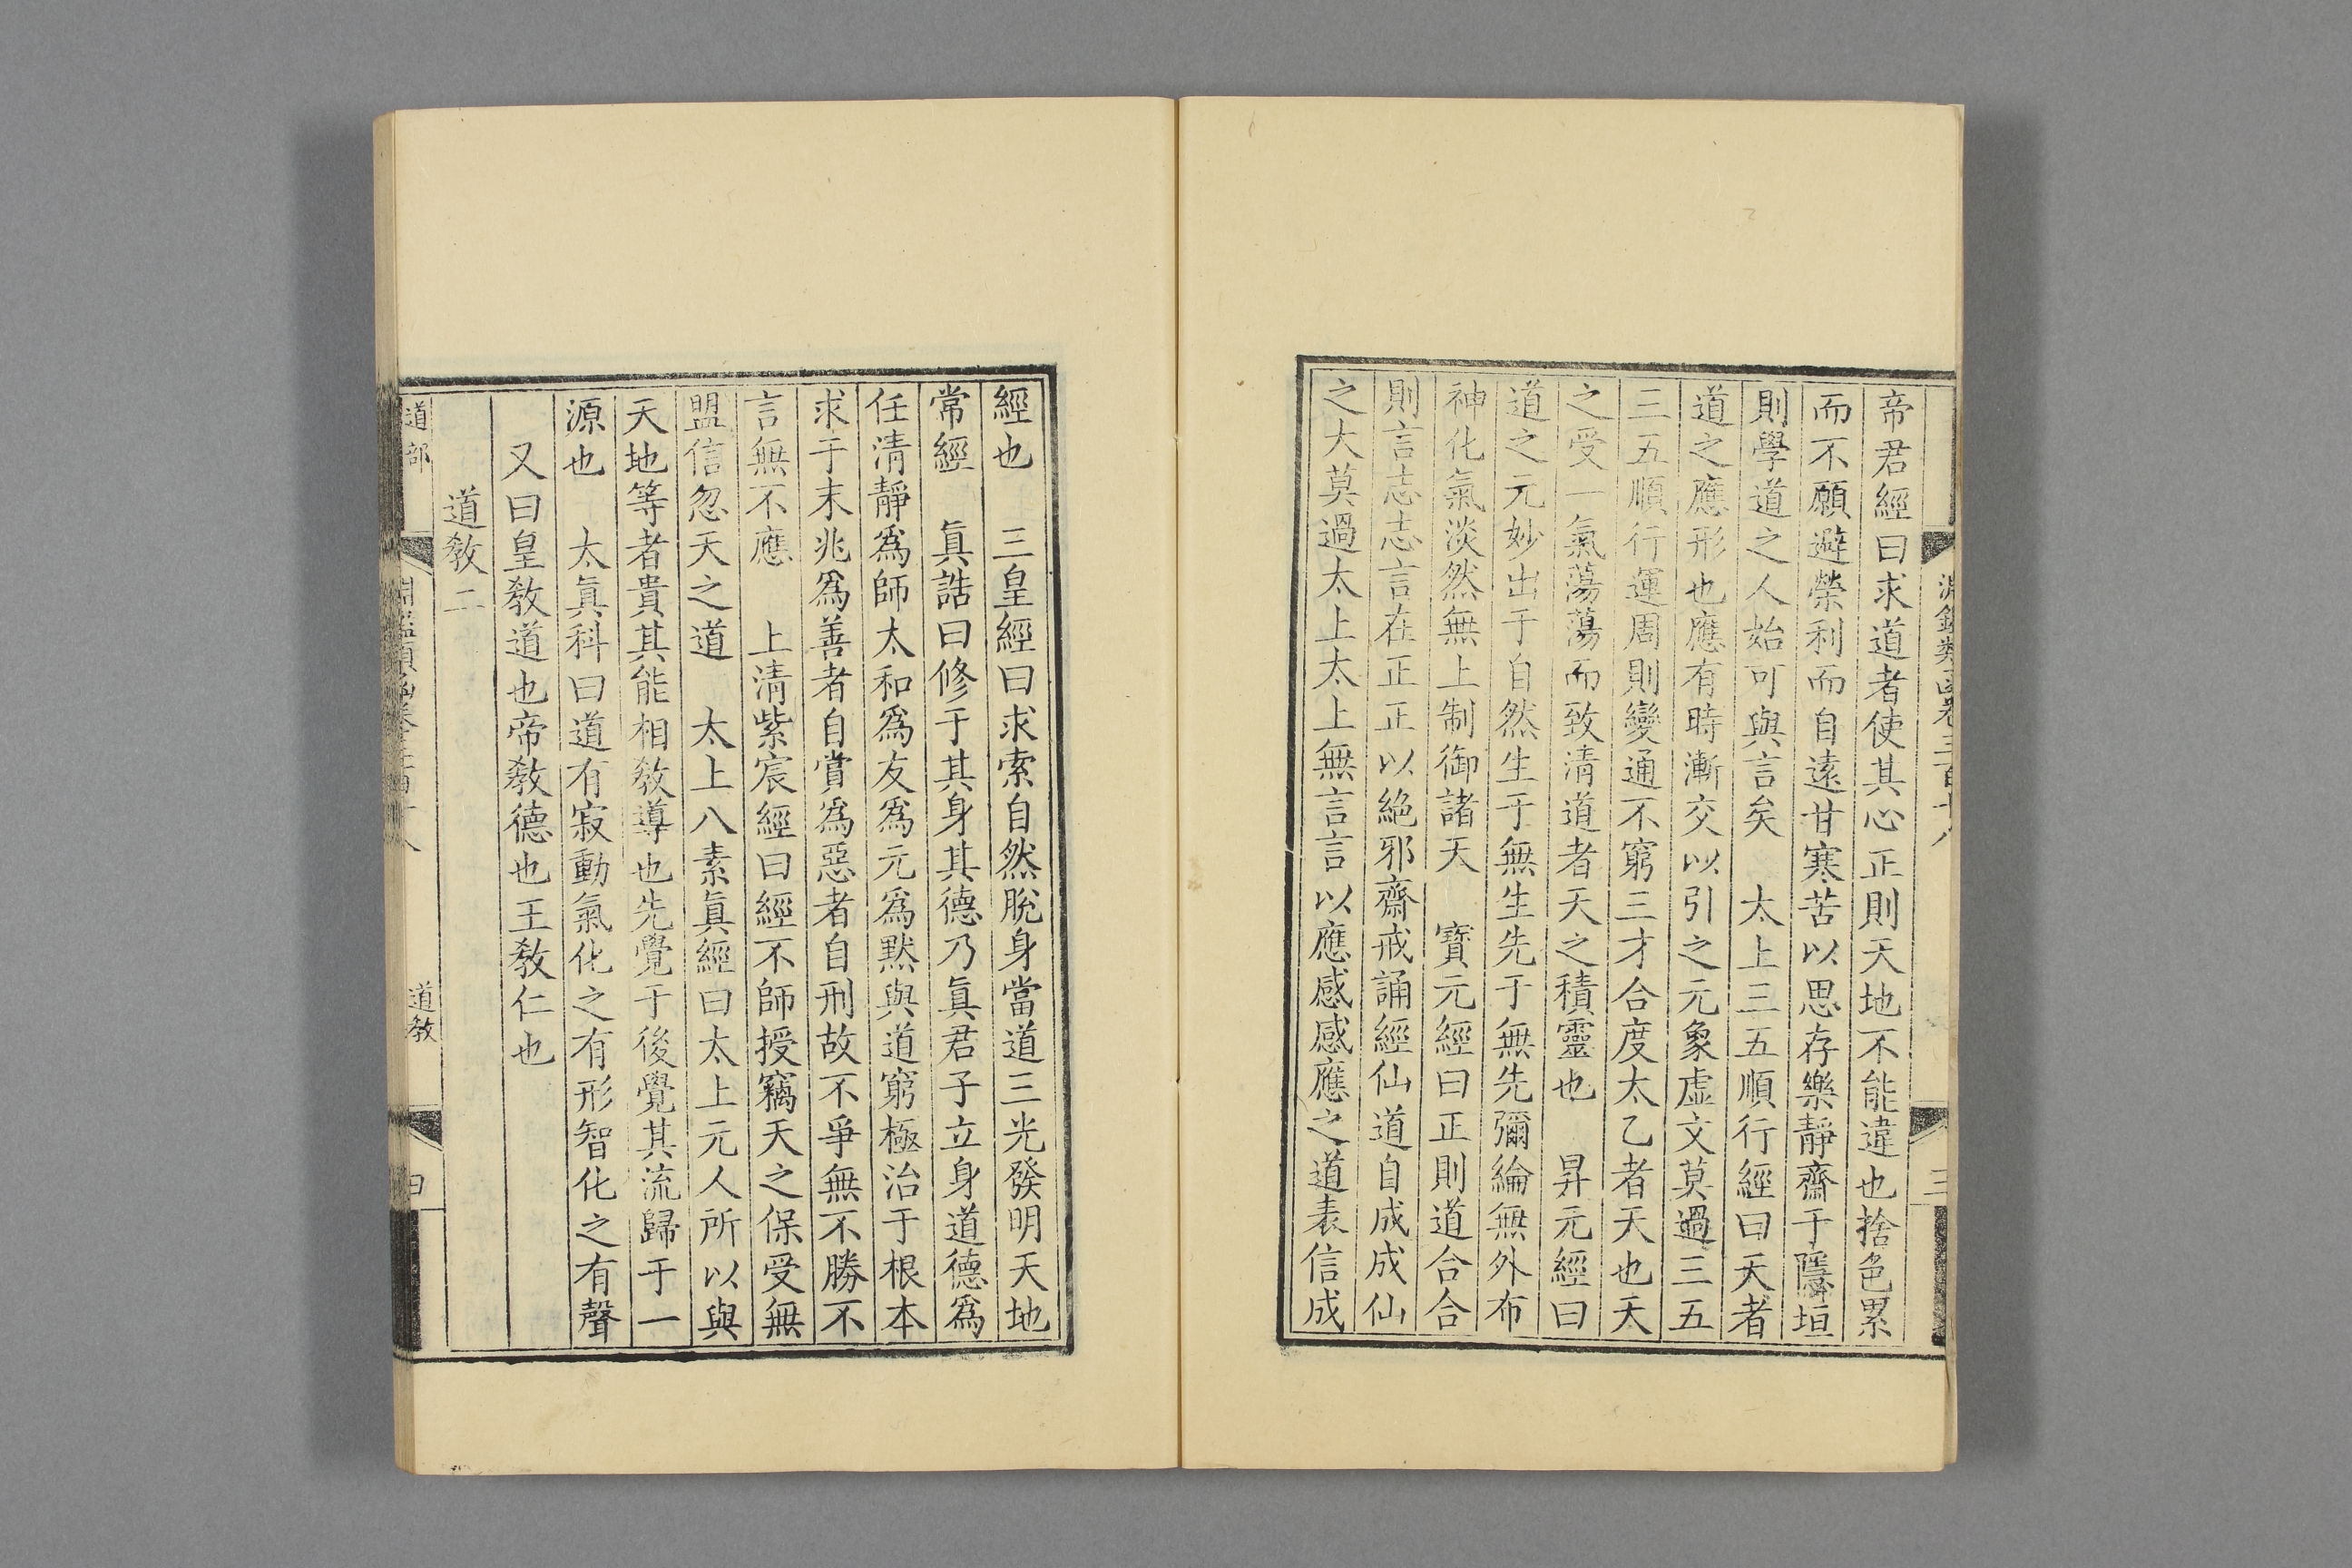 帝君經曰求道者使其心正則天地不能違也捨色累
而不願避榮利而自遠甘寒苦以思存樂靜齋于隱垣
則學道之人始可與言矣　太上三五順行經曰天者
道之應形也應有時漸交以引之元象虛文莫過三五
三五順行運周則變通不窮三才合度太乙者天也天
之受一氣蕩蕩而致清道者天之積靈也　昇元經曰
道之元妙出于自然生于無生先于無先彌綸無外布
神化氣淡然無上制御諸天　寶元經曰正則道合合
則言志志言在正正以絕邪齋戒誦經仙道自成成仙
之大莫過太上太上無言言以應感感應之道表信成
經也　三皇經曰求索自然脫身當道三光發明天地
常經　眞誥曰修于其身其德乃眞君子立身道德爲
任清靜爲師太和爲友爲元爲默與道窮極治于根本
求于末兆爲善者自賞爲惡者自刑故不爭無不勝不
言無不應　上清紫宸經曰經不師授竊天之保受無
盟信忽天之道　太上八素眞經曰太上元人所以與
天地等者貴其能相敎導也先覺于後覺其流歸于一
源也　太眞科曰道有寂動氣化之有形智化之有聲
又曰皇敎道也帝敎德也王敎仁也
道敎二
道部
道敎